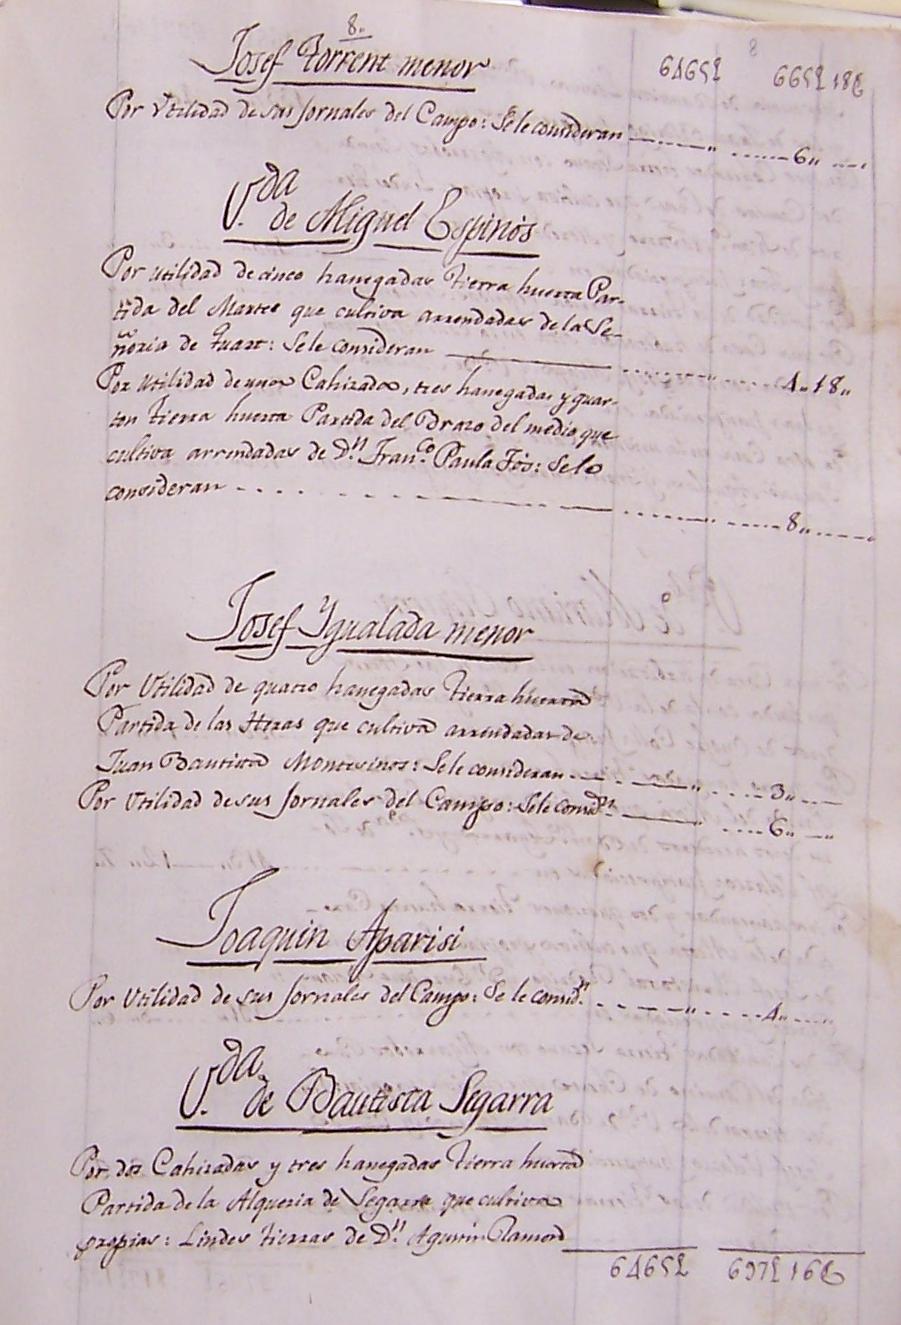 8.
Josef Torrent menor
6465₤ 665₤18₢
Por Vtilidad de sus Jornales del Campo: Se le consideran 6„
V.da de Miguel Espinós
Por utilidad de cinco hanegadas tierra huerta Par-
tida del Martes que cultiva arrendadas de la Se-
ñoria de Quart: Se le consideran 4„18„
Por utilidad de Cahizadas, tres hanegadas y quar-
ton tierra huerta Partida del Brazo del medio que
cultiva arrendadas de D.n Fran.co Paula Fos: Se le
consideran 8„
Josef Ygualada menor
Por Vtilidad de quatro hanegadas tierra huerta
Partida de las Heras que cultiva arrendadas de
Juan Bautista Montesinos: Se le consideran 3„
Por Vtilidad de sus Jornales del Campo: Se le consid.n 6„
Joaquin Aparisi
Por Vtilidad de sus Jornales del Campo: Se le consid.n 4„
V.da de Bautista Segarra
Por dos Cahizadas y tres hanegadas tierra huerta
Partida de la Alqueria de Segarra que cultiva
propias: Lindes tierras de D.n Agustin Ramon
6465₤ 697₤16₢